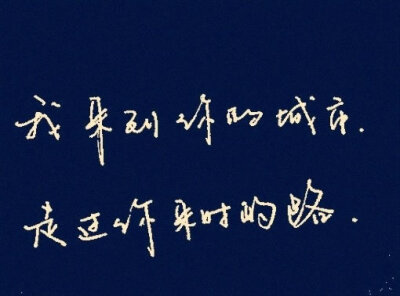 我来到你的城市.
走过你来时的路.